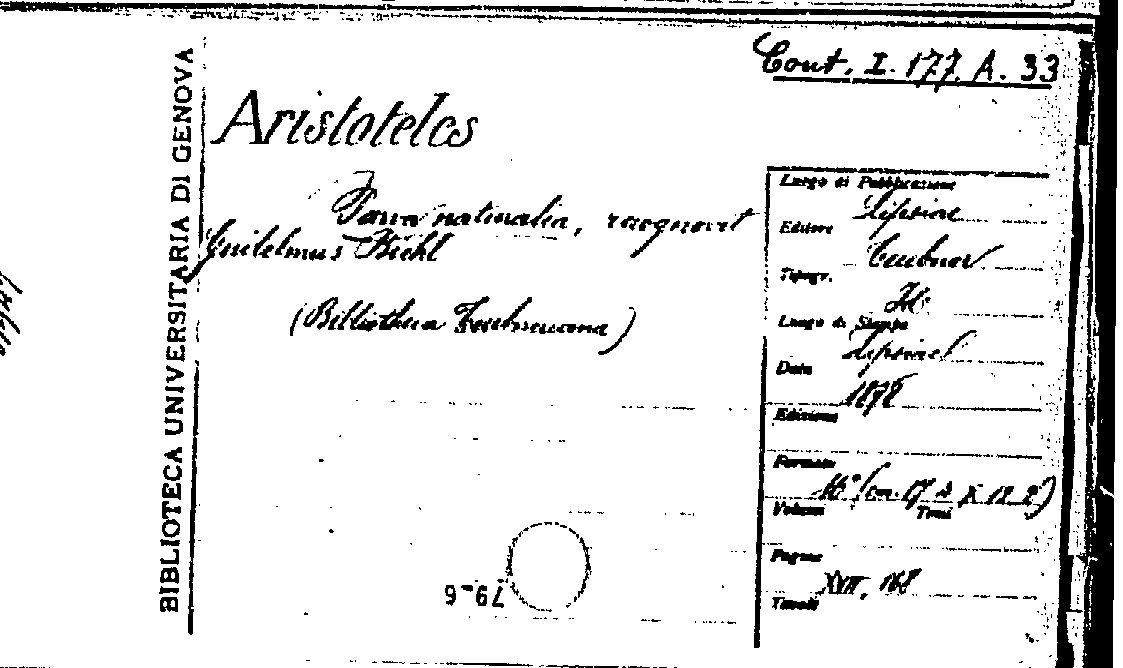 Cont. I. 177. A. 33
BIBLIOTECA UNIVERSITARIA DI GENOVA
Aristoteles
Parva naturalia, recognovit
Guilelmus Biehl
(Bibliotheca Teubneriana)
Luogo di Pubblicazione
Lipsiae
Editore
Teubner
Tipogr.
Id.
Luogo di Stampa
Lipsiae
Data
1898
Edizione
Formato
16° (cm.
Volumi
Tomi
Pagine
XVII, 168
Tavole
79-6